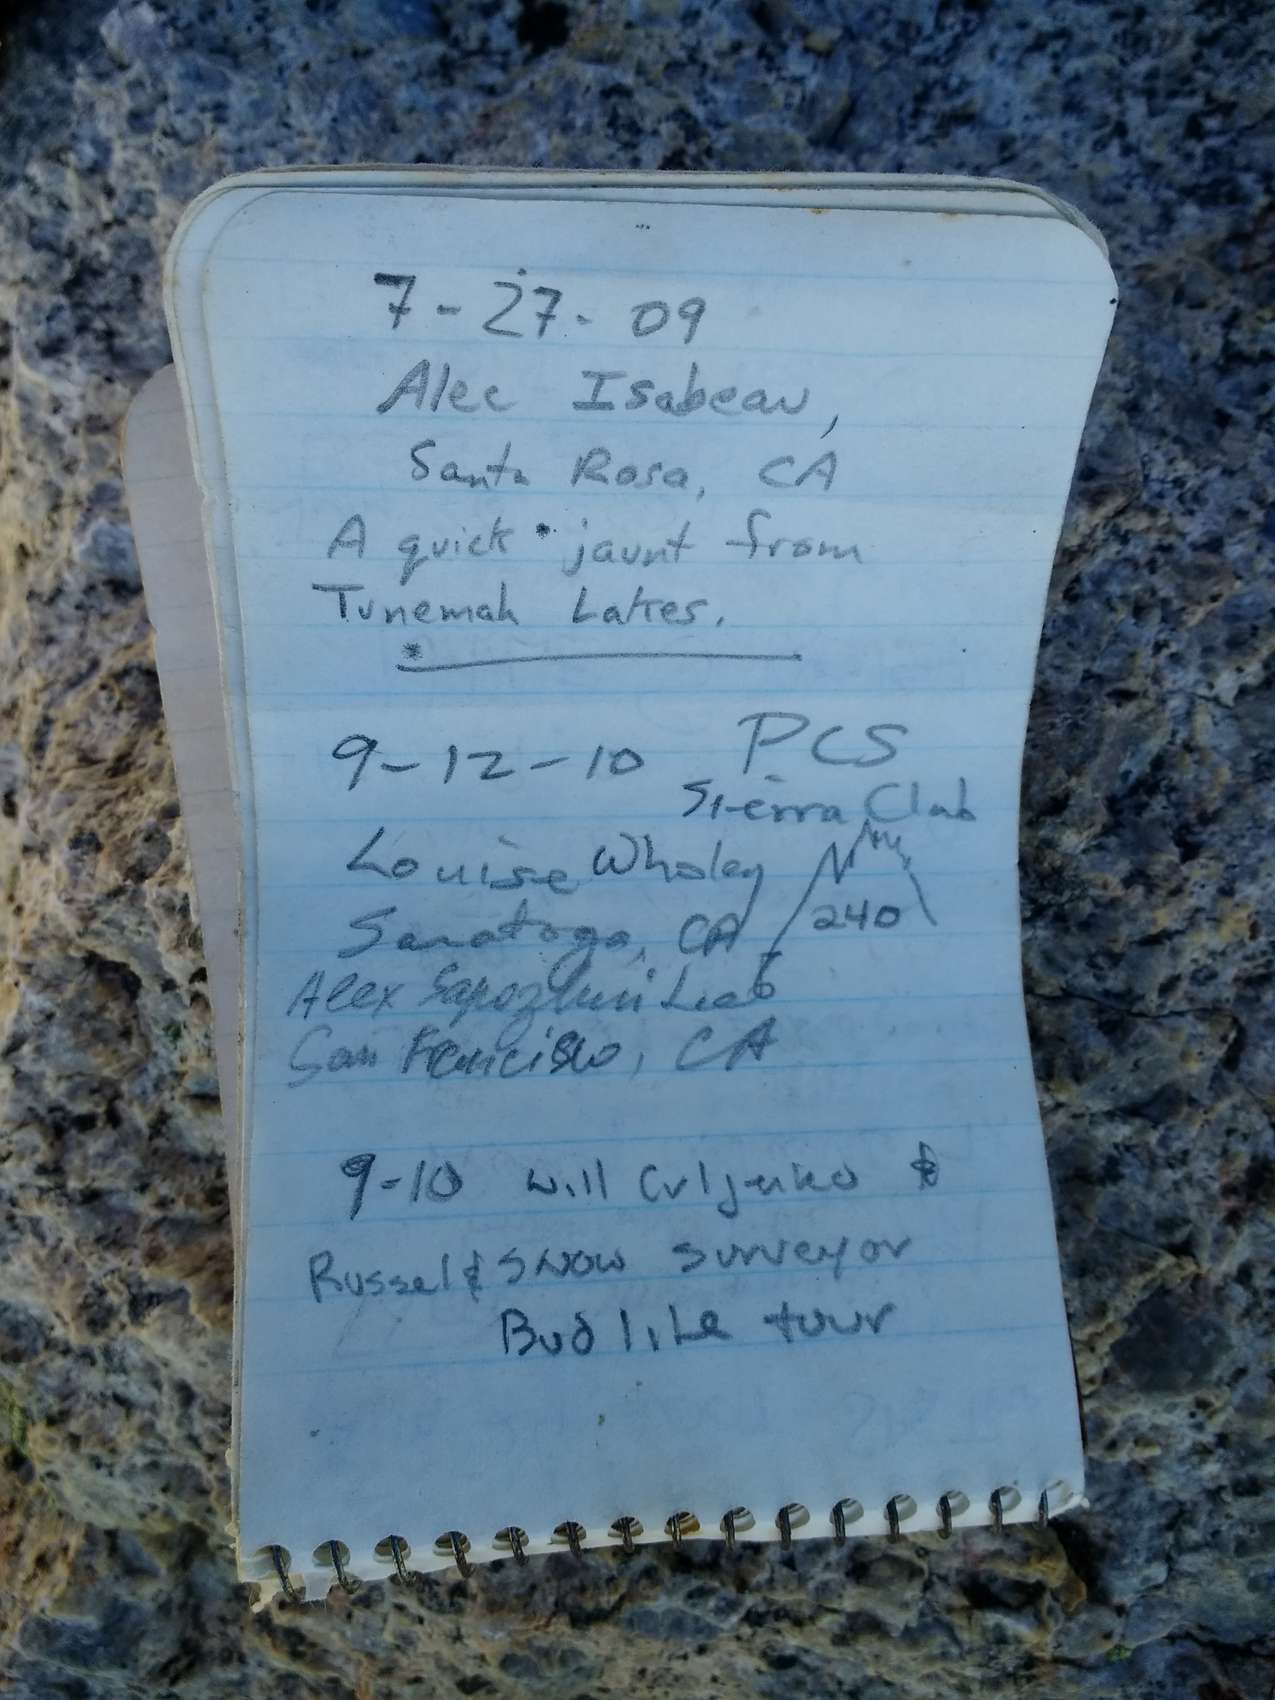 7-27-09
Alec Isabeau,
Santa Rosa, CA
A quick jaunt from
Tunemah Lakes.
9-12-10 PCS
Sierra Club
Louise Wholey
240
Saratoga, CA
Alex Sapozhnikov
San Francisco, CA
9-10 Will &
Russell snow surveyor
like tour